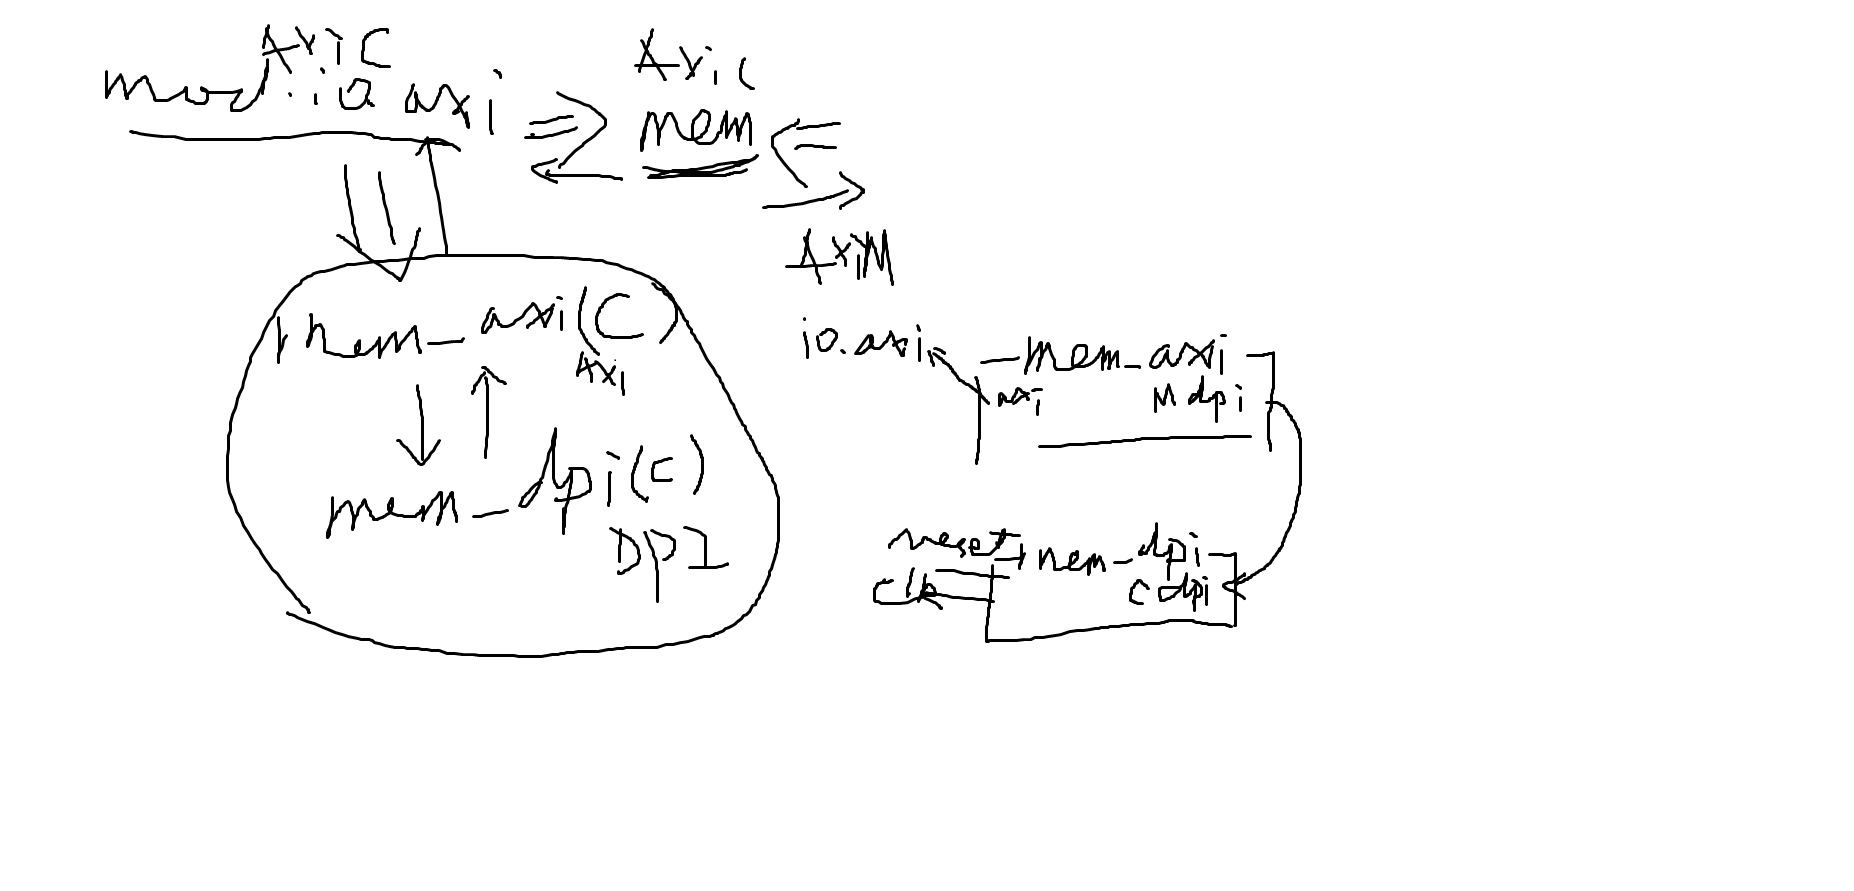 AxiC
mod.io axi
Axi C
mem
AxiM
mem_axi(C)
Axi
mem_dpi(C)
DPI
io.axi
mem_axi
axi
M dpi
reset
clk
mem_dpi
C dpi